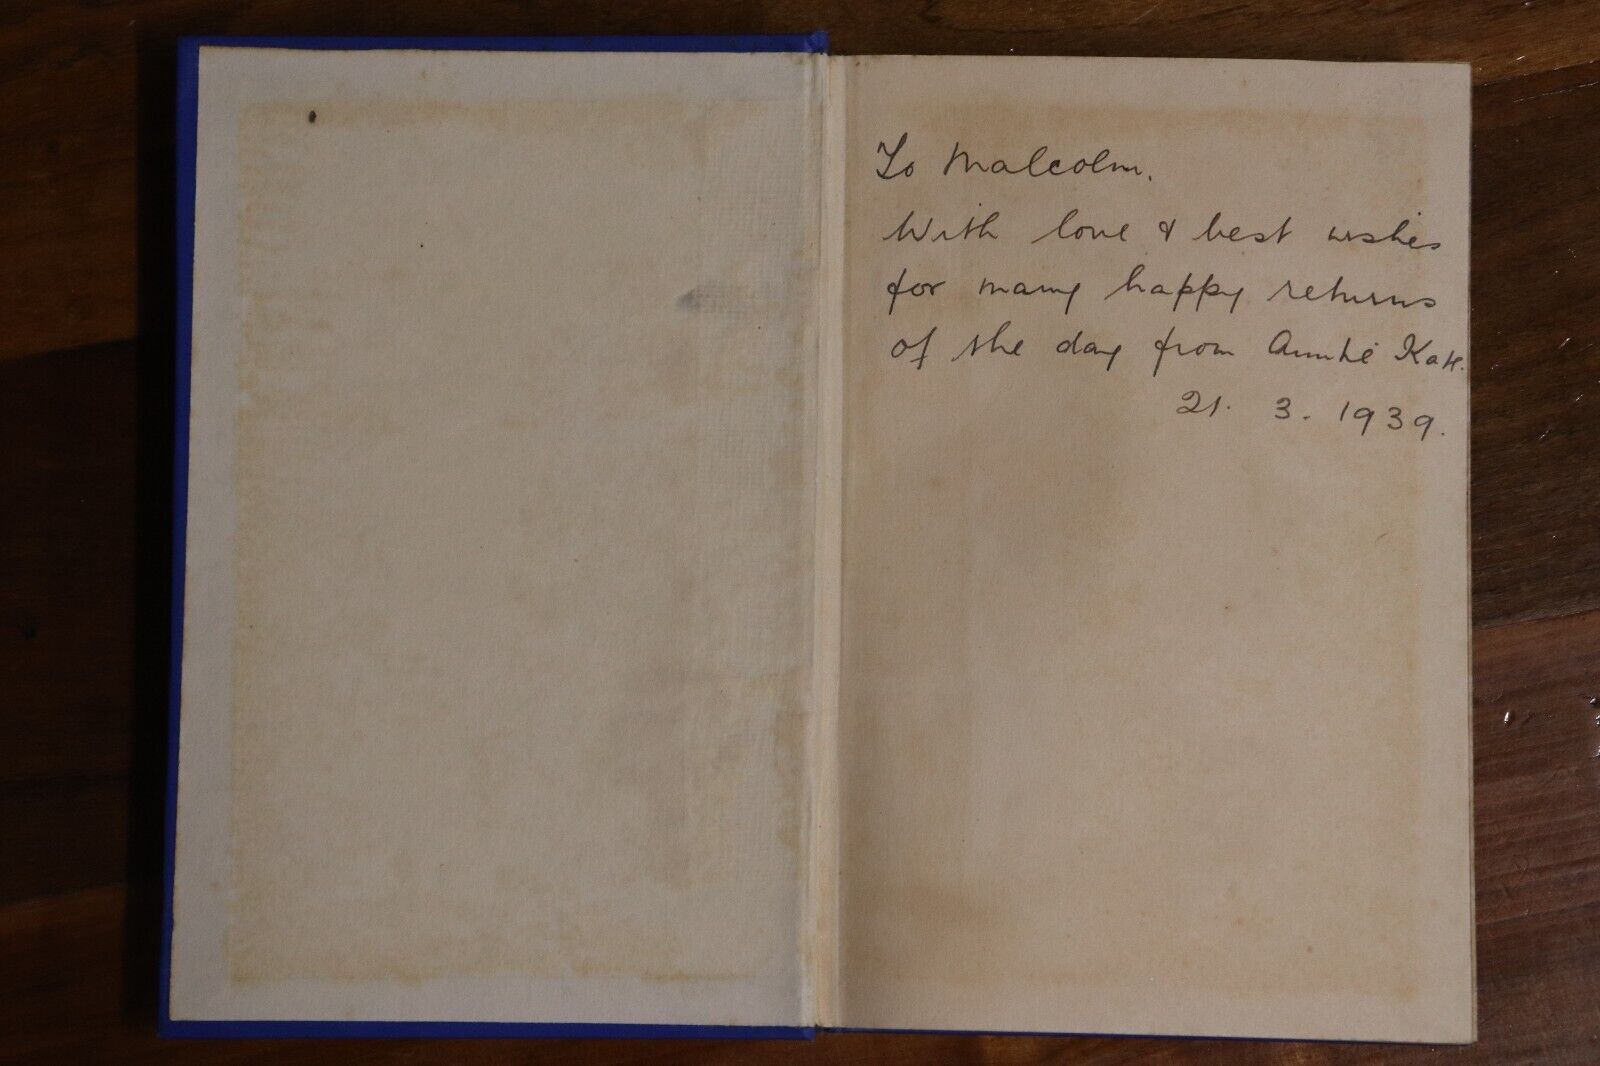 To Malcolm.
With love & best wishes
for many happy returns
of the day from Auntie Kate.
21. 3. 1939.